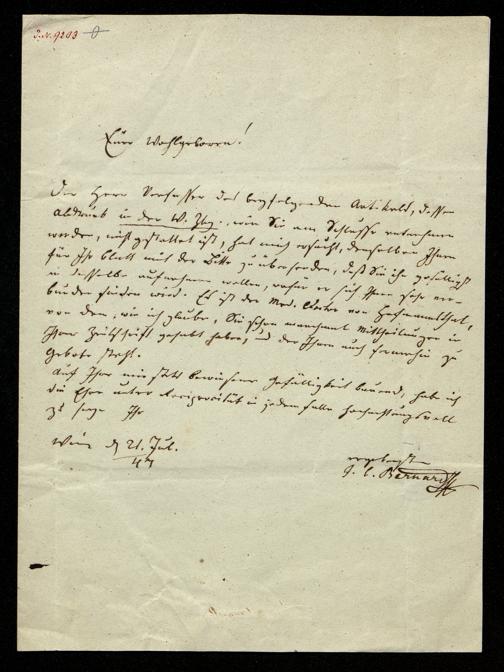 J. N. 9283
Euer Wohlgeboren!
Der Herr Verfasser des beyfolgenden Artikels, dessen
Abdruck in der W. Ztg., wie Sie am Schlusse vernehmen
werden, nicht gestattet ist, hat mich ersucht, denselben Ihnen
für Ihr Blatt mit der Bitte zu übersenden, daß Sie ihn gefälligst
in dasselbe aufnehmen wollen, wofür er sich Ihnen sehr ver-
bunden finden wird. Es ist der Med. Doctor von
von dem, wie ich glaube, Sie schon manchmal Mittheilungen in
Ihrer Zeitschrift gehabt haben, und der Ihnen auch fernerhin zu
Gebote steht.
Auf Ihre mir stets bewiesene Gefälligkeit bauend, habe ich
die Ehre unter Reciprocität in jedem Falle hochachtungsvoll
zu seyn Ihr
Wien d 21. Jul.
47
ergebenster
J. C. Bernard